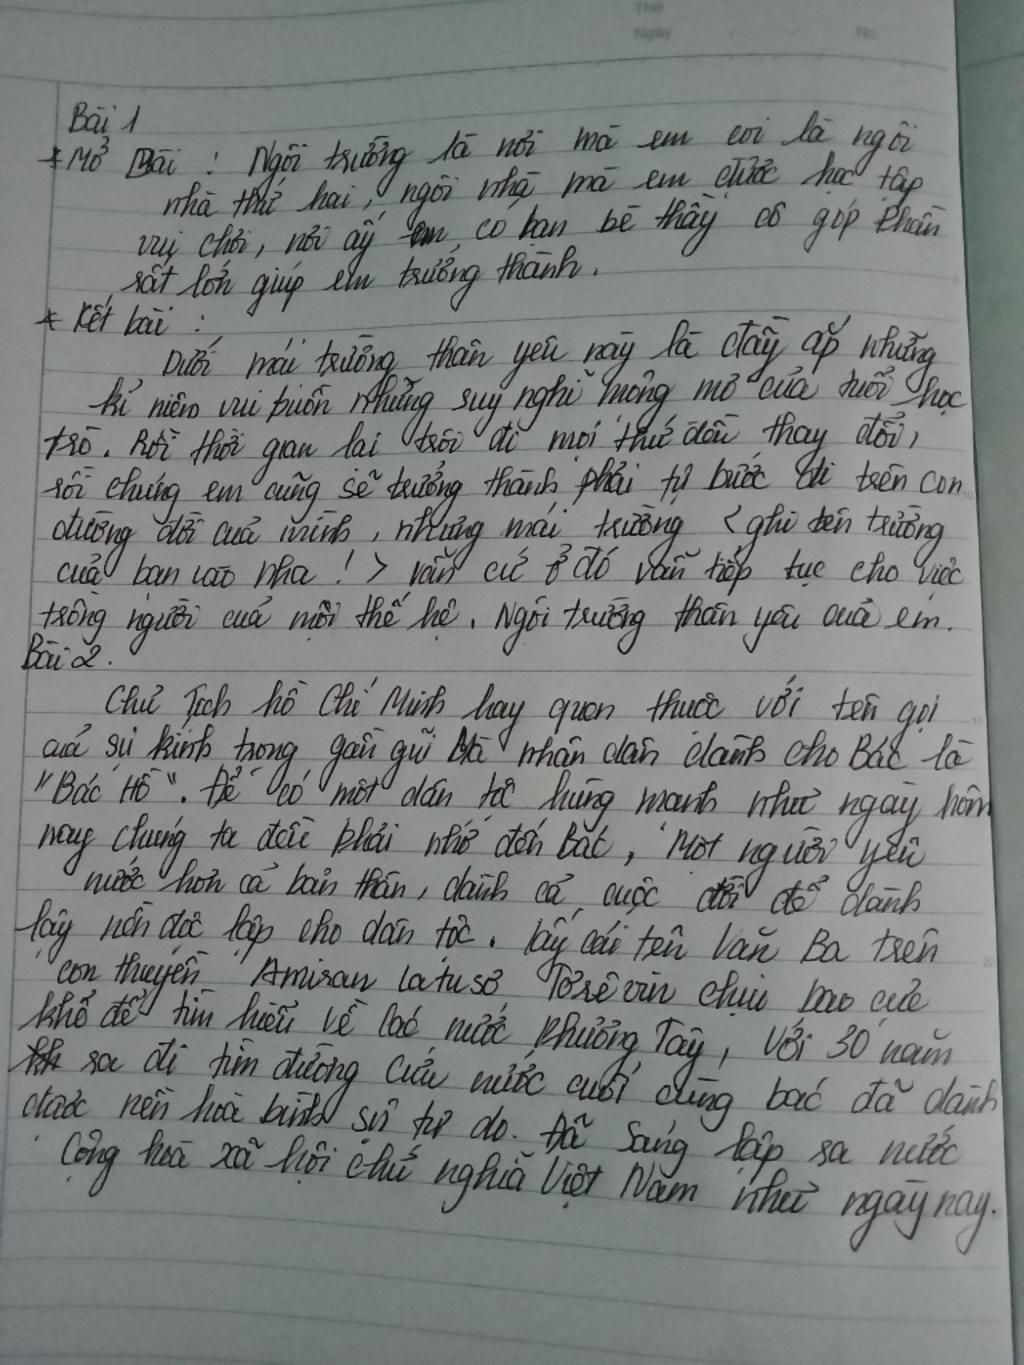 Thứ
Ngày No.
Bài 1
* Mở Bài : Ngôi trường là nơi mà em coi là ngôi
nhà thứ hai, ngôi nhà mà em được học tập
vui chơi, nơi ấy em có bạn bè thầy cô góp phần
rất lớn giúp em trưởng thành.
* Kết bài :
Dưới mái trường thân yêu này là đầy ắp những
kỉ niệm vui buồn những suy nghĩ mộng mơ của tuổi học
trò. Rồi thời gian lại trôi đi mọi thứ đều thay đổi,
rồi chúng em cũng sẽ trưởng thành phải tự bước đi trên con
đường đời của mình, nhưng mái trường < ghi tên trường
của bạn vào nha ! > vẫn cứ ở đó vẫn tiếp tục cho việc
trồng người của mỗi thế hệ. Ngôi trường thân yêu của em.
Bài 2.
Chủ Tịch hồ Chí Minh hay quen thuộc với tên gọi
của sự kính trọng gần gũi mà nhân dân dành cho Bác là
"Bác Hồ". Để có một dân tộc hùng mạnh như ngày hôm
nay chúng ta đều phải nhớ đến Bác, Một người yêu
nước hơn cả bản thân, dành cả cuộc đời để dành
lấy nền độc lập cho dân tộc. lấy cái tên Văn Ba trên
con thuyền Amiran Latusơ Tơrêvin chịu bao cực
khổ để tìm hiểu về các nước phương Tây, Với 30 năm
ra đi tìm đường cứu nước cuối cùng bác đã dành
được nền hoà bình sự tự do. Đã sáng lập ra nước
Cộng hoà xã hội chủ nghĩa Việt Nam như ngày nay.